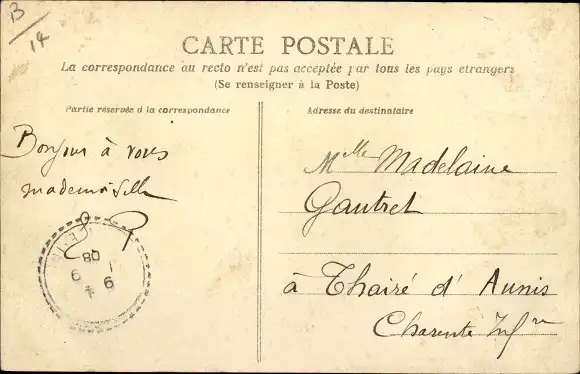 B/14
CARTE POSTALE
La correspondance au recto n'est pas acceptée par tous les pays etrangers
(Se renseigner à la Poste)
Partie réservée à la correspondance
Adresse du destinataire
Bonjour à vous
mademoiselle
Mlle Madelaine
Gautret
à Thairé d'Aunis
Charente Infre